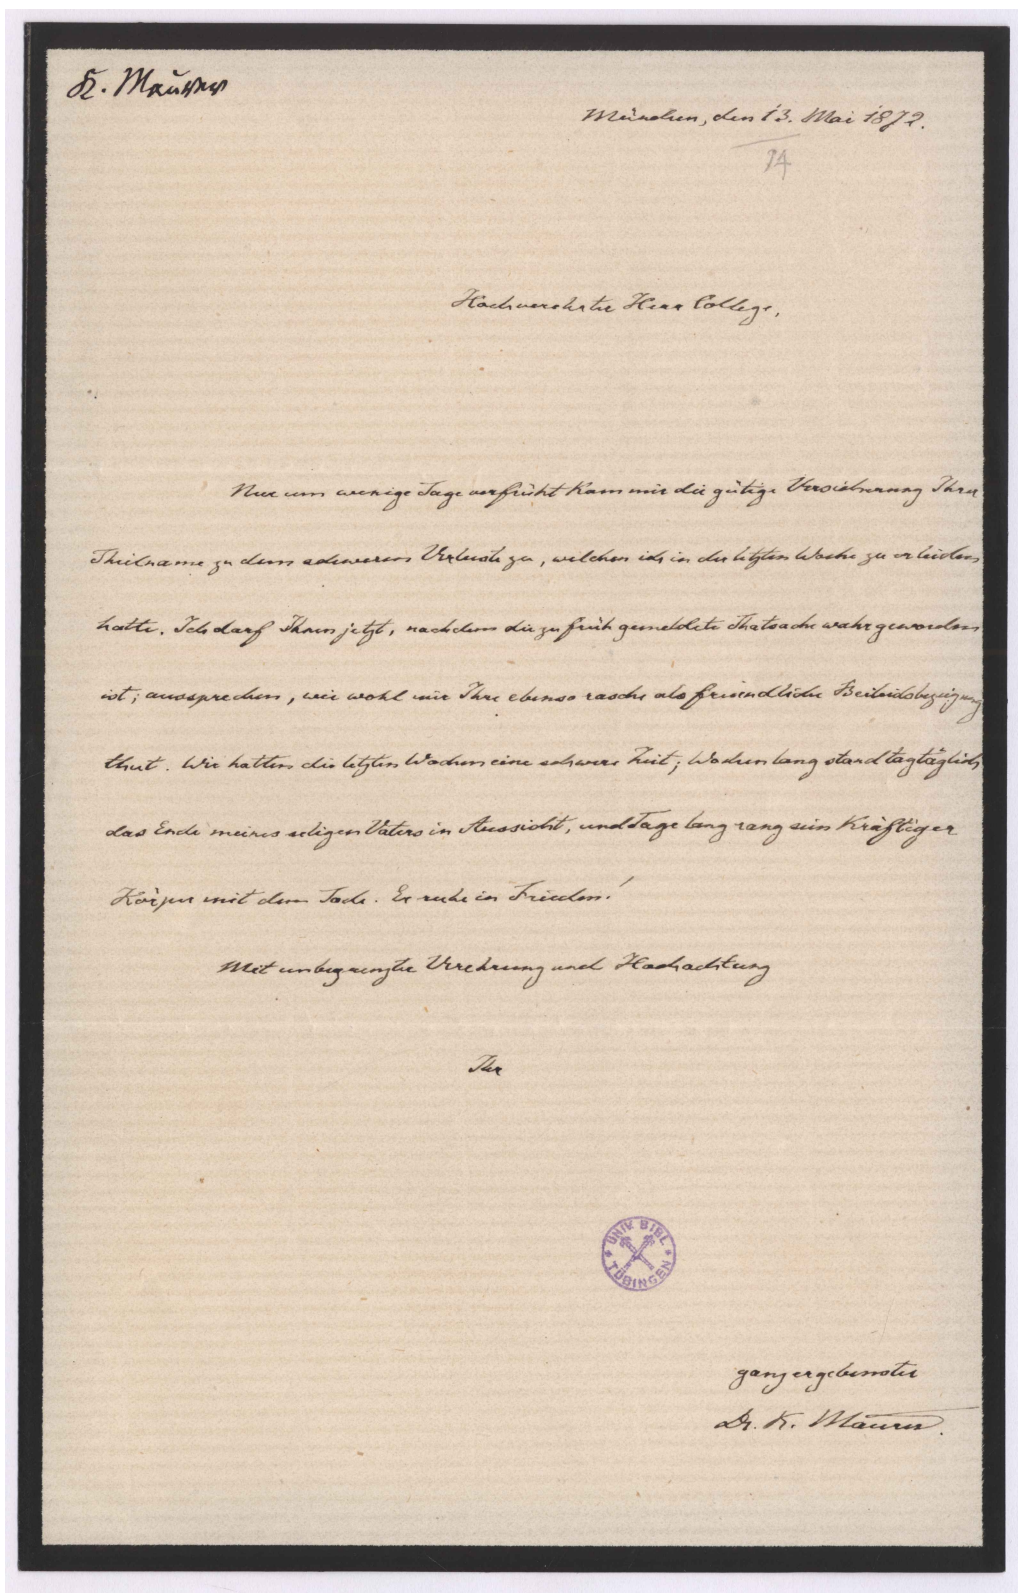 K. Maurer
München, den 13. Mai 1872.
74
Hochverehrter Herr College,
Nur um wenige Tage verfrüht kam mir die gütige Versicherung Ihrer
Theilname zu dem schweren Verluste zu, welchen ich in der letzten Woche zu erleiden
hatte. Ich darf Ihnen jetzt, nachdem die zu früh gemeldete Thatsache wahr geworden
ist, aussprechen, wie wohl mir Ihre ebenso rasche als freundliche Beileidsbezeigung
thut. Wir hatten die letzten Wochen eine schwere Zeit; Wochen lang stand tagtäglich
das Ende meines seligen Vaters in Aussicht, und Tage lang rang sein kräftiger
Körper mit dem Tode. Er ruhe in Frieden!
Mit unbegrenzter Verehrung und Hochachtung
Ihr
UNIV. BIBL. TÜBINGEN
ganz ergebenster
Dr. K. Maurer.